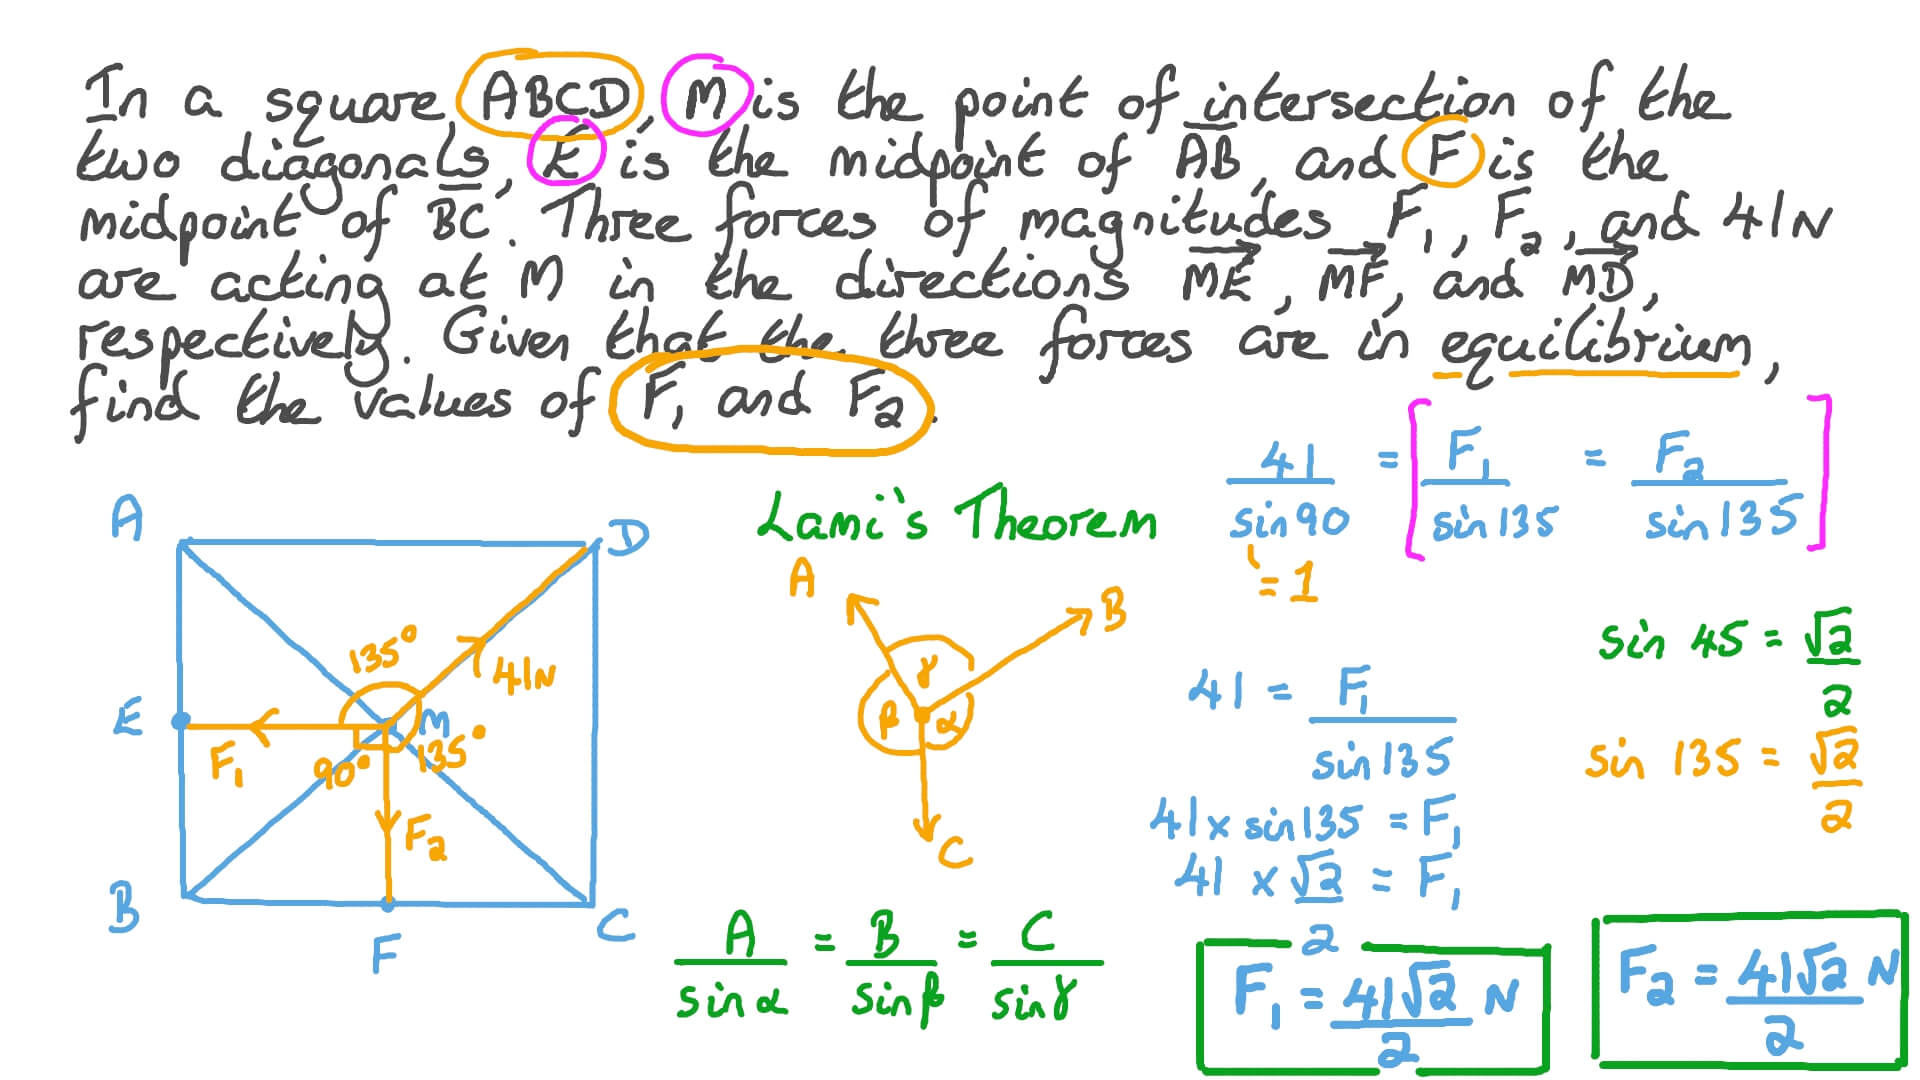 In a square ABCD, M is the point of intersection of the
two diagonals, E is the midpoint of AB, and F is the
midpoint of BC. Three forces of magnitudes F₁, F₂, and 41N
are acting at M in the directions ME, MF, and MD,
respectively. Given that the three forces are in equilibrium,
find the values of F₁ and F₂.
A
D
E
M
B
C
F
135°
41N
F₁
90°
135°
F₂
Lami's Theorem
A
B
C
γ
β
α
A/sinα = B/sinβ = C/sinγ
41/sin90 = [F₁/sin135 = F₂/sin135]
=1
41 = F₁/sin135
41 x sin135 = F₁
41 x √2/2 = F₁
F₁ = 41√2/2 N
sin 45 = √2/2
sin 135 = √2/2
F₂ = 41√2/2 N